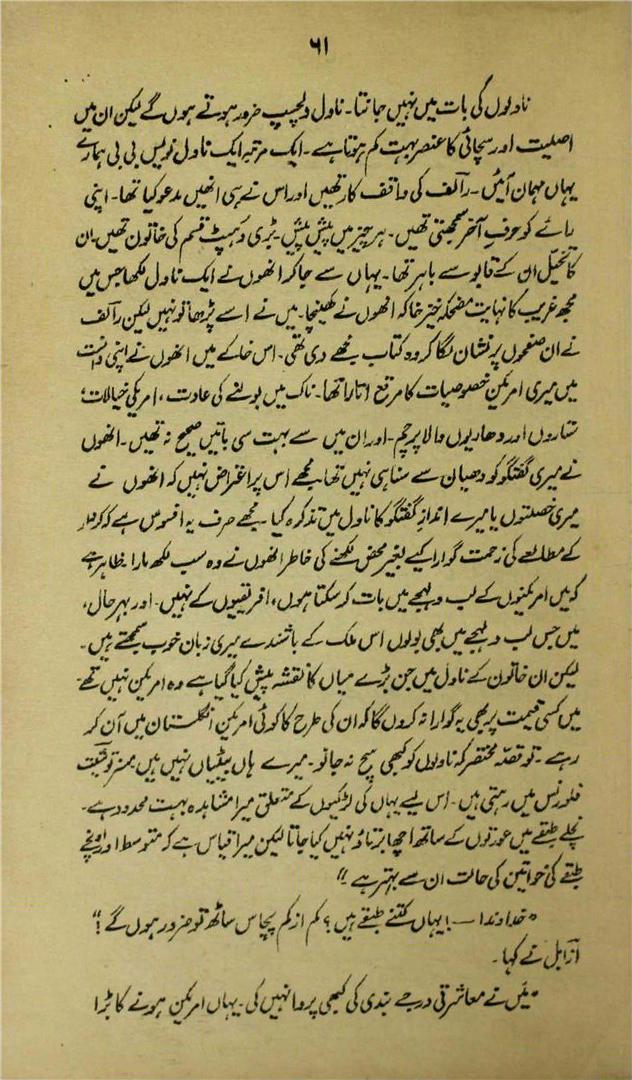 ۶۱
ناولوں کی بات میں نہیں جانتا۔ ناول دلچسپ ضرور ہوتے ہوں گے لیکن ان میں
اصلیت اور سچائی کا عنصر بہت کم ہوتا ہے۔ ایک مرتبہ ایک ناول نویس بی بی ہمارے
یہاں مہمان آئیں۔ رآلف کی واقف کار تھیں اور اس نے ہی انھیں مدعو کیا تھا۔ اپنی
رائے کو حرفِ آخر سمجھتی تھیں۔ ہر چیز میں پیش پیش۔ بڑی دھپٹ قسم کی خاتون تھیں۔ ان
کا تخیل ان کے قابو سے باہر تھا۔ یہاں سے جا کر انھوں نے ایک ناول لکھا جس میں
مجھ غریب کا نہایت مضحکہ خیز خاکہ انھوں نے کھینچا۔ میں نے اسے پڑھا تو نہیں لیکن رآلف
نے ان صفحوں پر نشان لگا کر وہ کتاب مجھے دی تھی۔ اس خاکے میں انھوں نے اپنی دانست
میں میری امریکن خصوصیات کا مرقع اتارا تھا۔ ناک میں بولنے کی عادت، امریکی خیالات،
ستاروں اور دھاریوں والا پرچم۔ اور ان میں سے بہت سی باتیں صحیح نہ تھیں۔ انھوں
نے میری گفتگو کو دھیان سے سنا ہی نہیں تھا۔ مجھے اس پر اعتراض نہیں کہ انھوں نے
میری خصلتوں یا میرے اندازِ گفتگو کا ناول میں تذکرہ کیا۔ مجھے صرف یہ افسوس ہے کہ کردار
کے مطالعے کی زحمت گوارا کیے بغیر محض لکھنے کی خاطر انھوں نے وہ سب لکھ مارا۔ ظاہر ہے
کہ میں امریکنوں کے لب و لہجے میں بات کر سکتا ہوں، افریقیوں کے نہیں۔ اور بہر حال،
میں جس لب و لہجے میں بھی بولوں اس ملک کے باشندے میری زبان خوب سمجھتے ہیں۔
لیکن ان خاتون کے ناول میں جن بڑے میاں کا نقشہ پیش کیا گیا ہے وہ امریکن نہیں تھے۔
میں کسی قیمت پر بھی یہ گوارا نہ کروں گا کہ ان کی طرح کا کوئی امریکن انگلستان میں آن کر
رہے۔ تو قصّہ مختصر کہ ناولوں کو کبھی سچ نہ جانو۔ میرے ہاں بیٹیاں نہیں ہیں۔ مسز توشیت
فلورنس میں رہتی ہیں۔ اس لیے یہاں کی لڑکیوں کے متعلق میرا مشاہدہ بہت محدود ہے۔
نچلے طبقے میں عورتوں کے ساتھ اچھا برتاؤ نہیں کیا جاتا لیکن میرا قیاس ہے کہ متوسط اور اونچے
طبقے کی خواتین کی حالت ان سے بہتر ہے۔"
"خداوندا —! یہاں کتنے طبقے ہیں؟ کم از کم پچاس ساٹھ تو ضرور ہوں گے؟"
ازآبل نے کہا۔
"میں نے معاشرتی درجے بندی کی کبھی پروا نہیں کی۔ یہاں امریکن ہونے کا بڑا